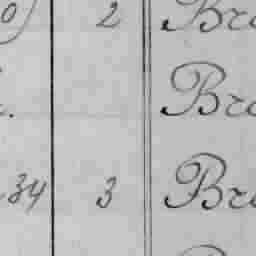 0) 2 Bro
. Bro
34 3 Bro